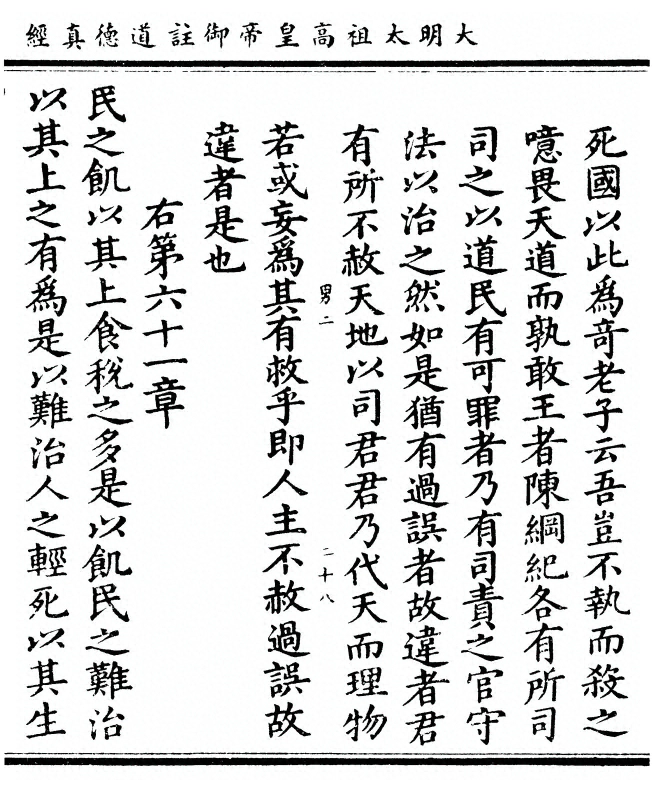 大明太祖高皇帝御註道德真經
死國以此爲竒老子云吾豈不執而殺之
噫畏天道而孰敢王者陳綱紀各有所司
司之以道民有可罪者乃有司責之官守
法以治之然如是猶有過誤者故違者君
有所不赦天地以司君君乃代天而理物
男二
二十八
若或妄爲其有救乎即人主不赦過誤故
違者是也
右第六十一章
民之飢以其上食稅之多是以飢民之難治
以其上之有爲是以難治人之輕死以其生